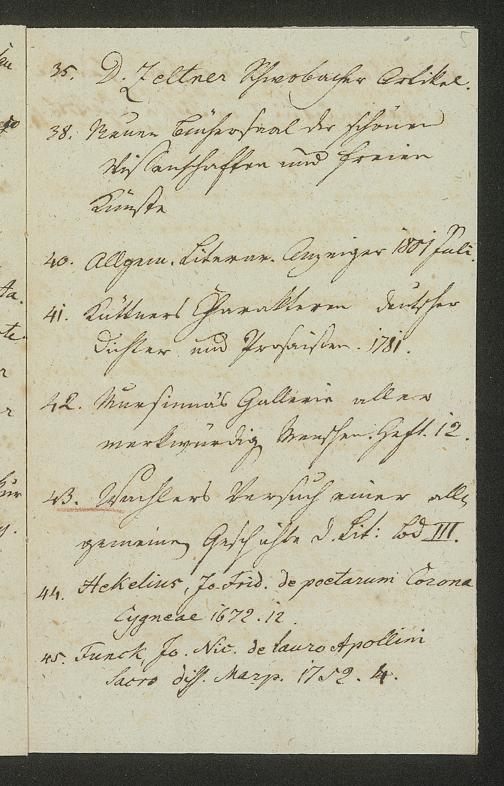 5
35. D. Zeltner Schwobacher Artikel.
38. Neuer Büchersaal der schönen
Wissenschaften und freien
Künste
40. Allgem. Literar. Anzeiger 1801 Juli.
41. Küttners Charakteren deutscher
Dichter und Prosaisten. 1781.
42. Mursinna's Gallerie aller
merkwürdig Menschen. Heft. 12.
43. Wachlers Versuch einer allg
gemeinen Geschichte d. Lit: Bd III.
44. Hekelius, Jo Frid. de poetarum Corona
Cygneae 1672. 12.
45. Funck, Jo. Nic. de lauro Apollini
Sacro diss. Marp. 1752. 4.